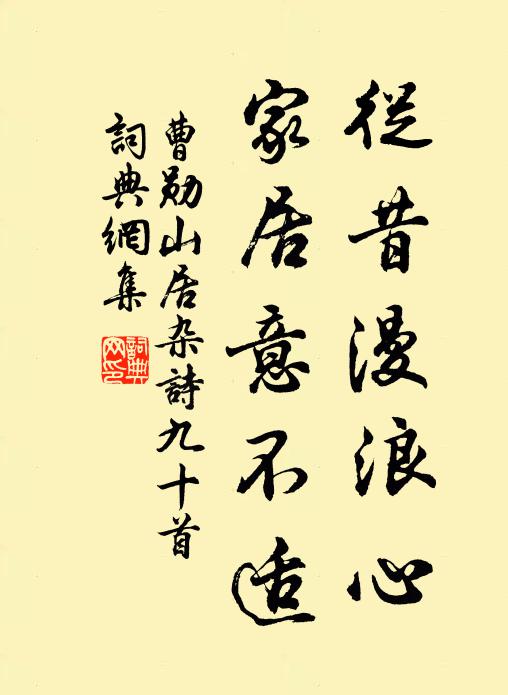 從昔漫浪心
家居意不适
曹勋山居杂詩九十首
詞典網集
詞典
网印